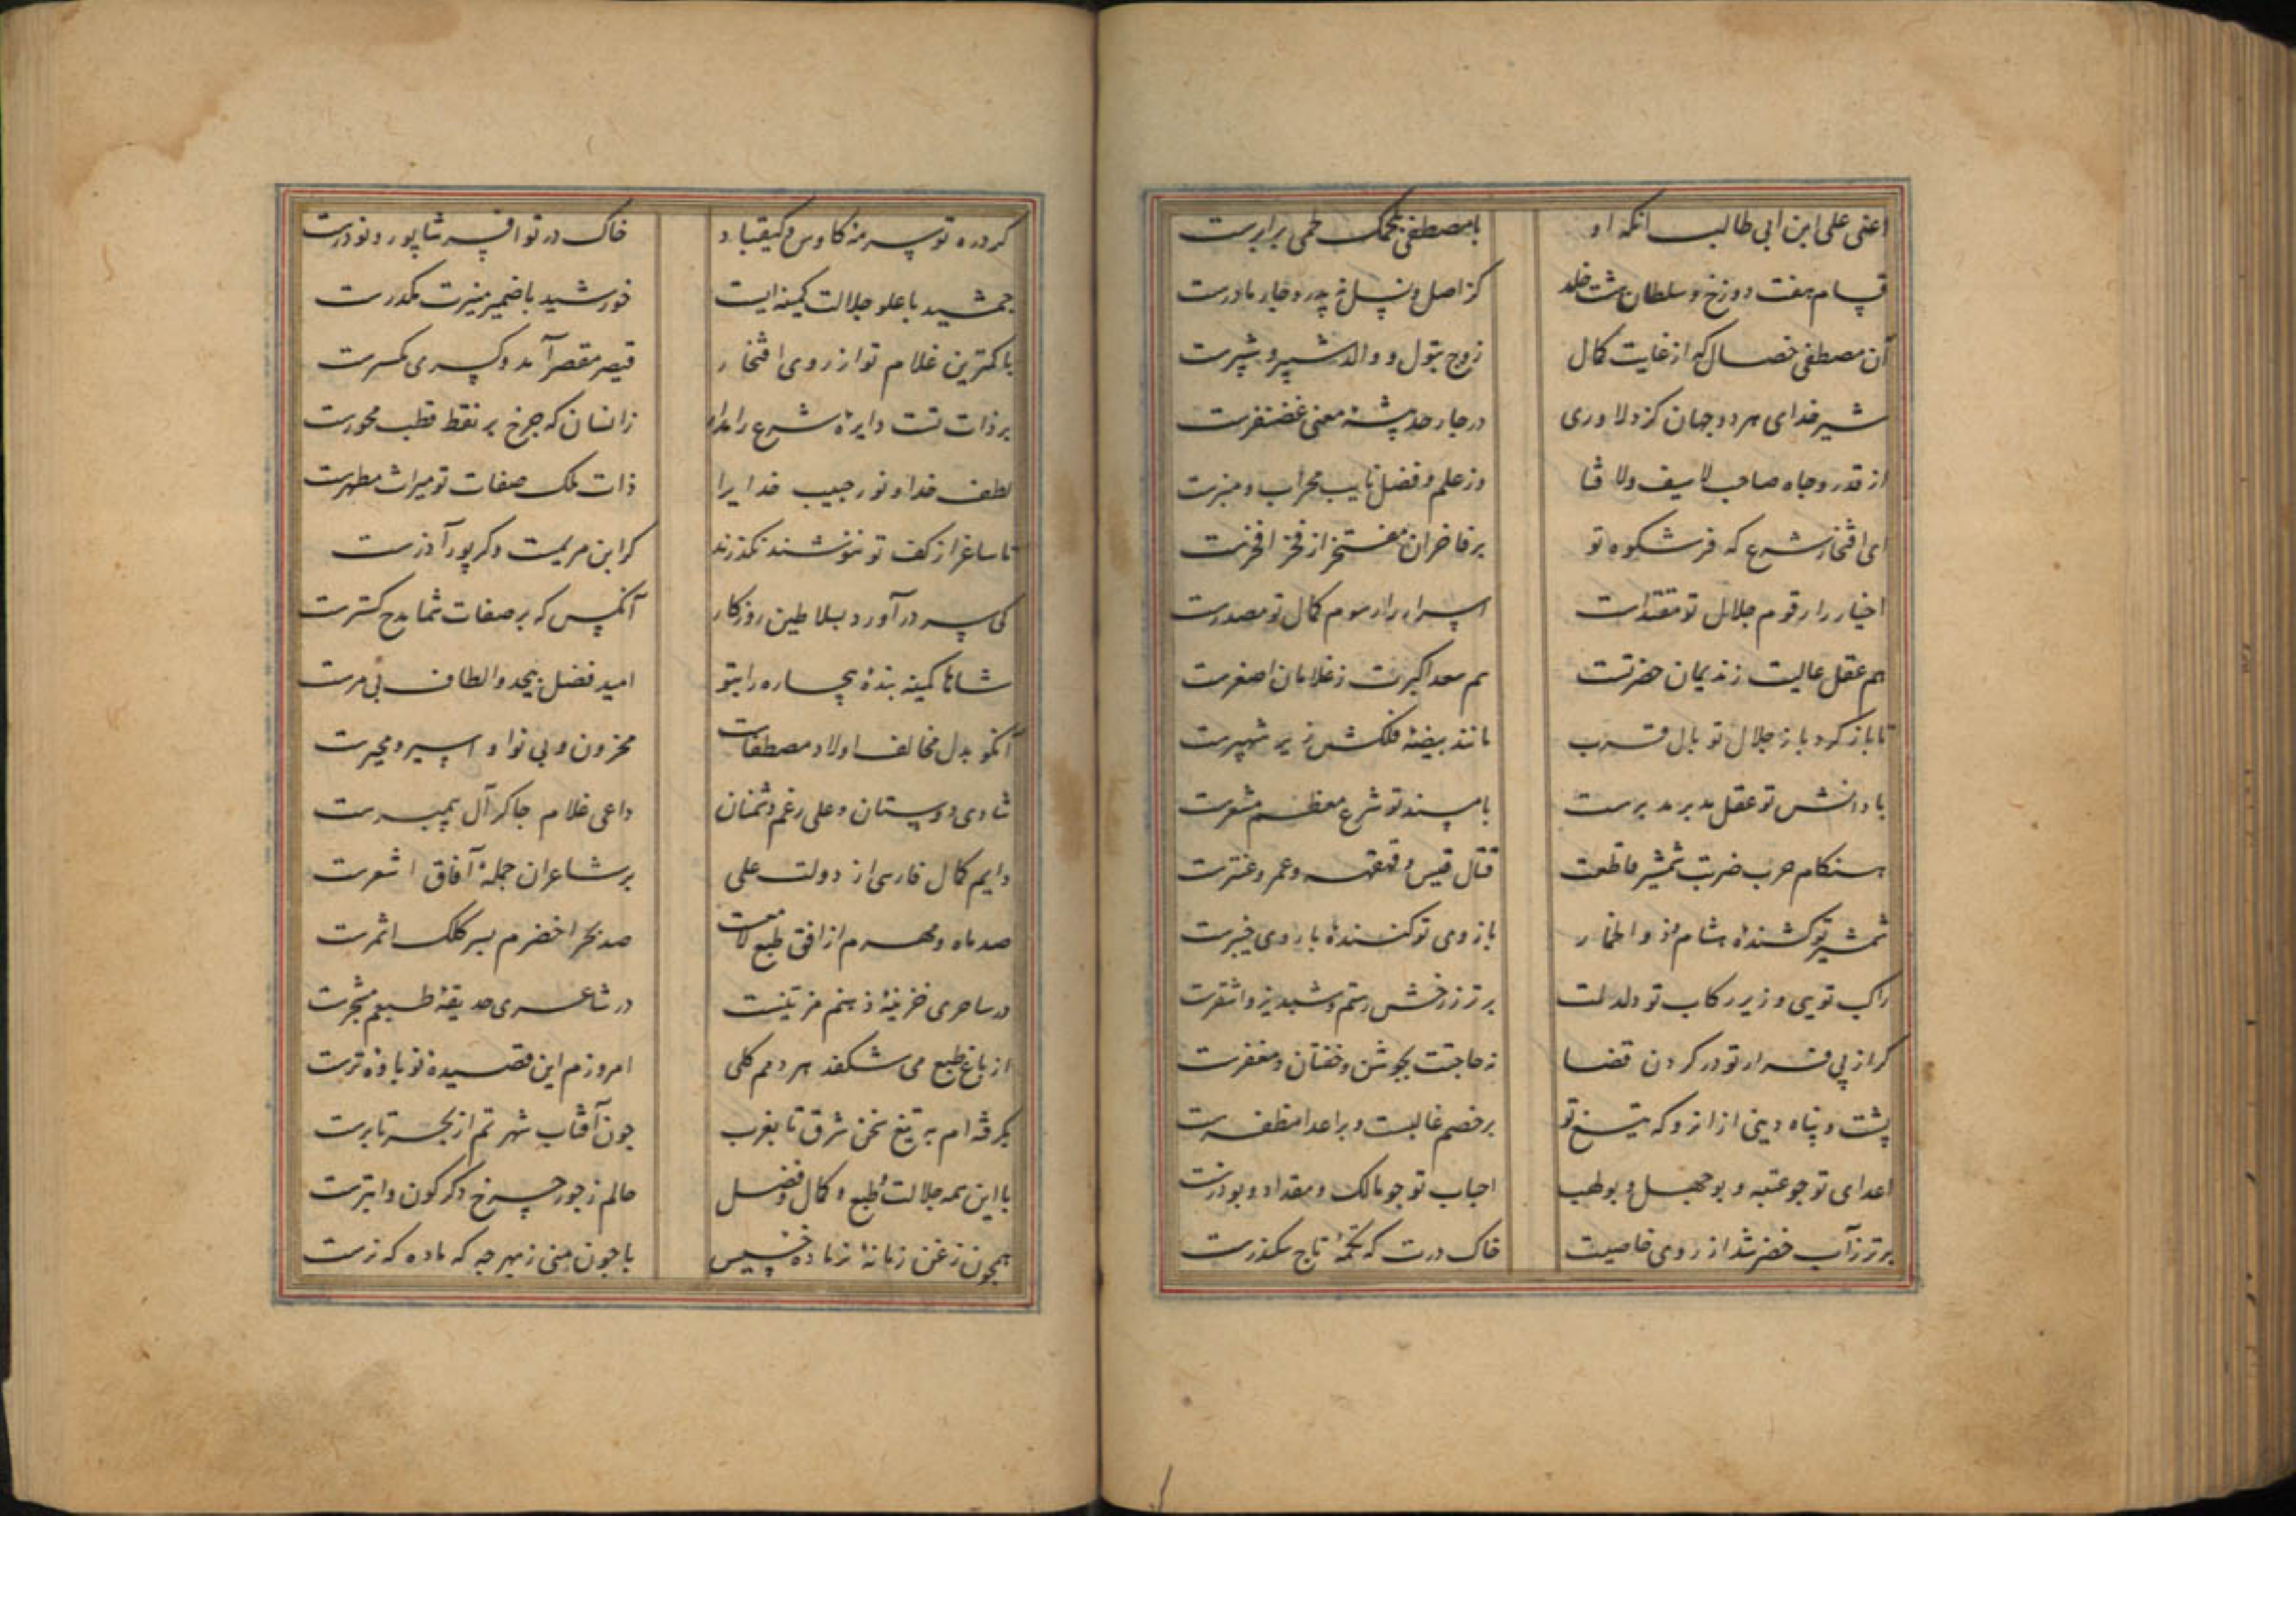 اعنی علی ابن ابی طالب انکه او با مصطفی بحکمک لحمی برابرست
قسام هفت دوزخ و سلطان هشت خلد کز اصل و نسل نه پدر و چار مادرست
آن مصطفی خصال که از غایت کمال زوج بتول و والد شبیر و شبرست
شیر خدای هر دو جهان کز دلاوری در چار حد بیشهٔ معنی غضنفرست
از قدر و جاه صاحب لاسیف و لافتا وز علم و فضل نایب محراب و منبرست
ای افتخار شرع که فر شکوه تو بر فاخران مفتخر از فخر افخرست
اخیار را رقوم جلال تو مقتداست اسرار را رسوم کمال تو مصدرست
هم عقل عالیت ز ندیمان حضرتست هم سعد اکبرت ز غلامان اصغرست
تا باز کرد باز جلال تو بال قرب مانند بیضهٔ فلکش زیر شهپرست
با دانش تو عقل مدبر مدبرست با مسند تو شرع معظم مشعرست
هنکام حرب ضربت شمشیر قاطعت قتال قیس و قهقهه و عمر و عنترست
شمشیر تو کشندهٔ هشام و ذو الخمار بازوی تو کنندهٔ باروی خیبرست
راکب تویی و زیر رکاب تو دلدلت برتر ز رخش رستم و شبدیز و اشقرست
کر از پی قرار تو در کردن قضا نه حاجتت بجوشن و خفتان و مغفرست
پشت و پناه دینی از انرو که تیغ تو بر خصم غالبست و بر اعدا مظفرست
اعدای تو جو عتبه و بوجهل و بولهب احباب تو جو مالک و مقداد و بوذرست
برتر ز آب خضر شد از روی خاصیت خاک درت که تکمهٔ تاج سکندرست
کرد ره تو سرمهٔ کاوس و کیقباد خاک در تو افسر شاپور و نوذرست
جمشید با علو جلالت کمینه ایست خورشید با ضمیر منیرت مکدرست
با کمترین غلام تو از روی افتخار قیصر مقصر آمد و کسری مکسرست
بر ذات تست دایرهٔ شرع را مدار زانسان که جرخ بر نقط قطب محورست
لطف خدا و نور حبیب خدایرا ذات ملک صفات تو میراث مطهرست
تا ساغر از کف تو ننوشند نکذرند کر ابن مریمست و کر پور آذرست
کی سر در آورد بسلاطین روزکار آنکس که بر صفات شما مدح کسترست
شاها کمینه بندهٔ بیچاره را بتو امید فضل بیحد و الطاف بی مرست
آنکو بدل مخالف اولاد مصطفاست محزون و بی نوا و اسیر و محیرست
شادی دوستان و علی رغم دشمنان داعی غلام جاکر آل پیمبرست
دایم کمال فارسی از دولت علی بر شاعران جملهٔ آفاق اشعرست
صد ماه و مهرم از افق طبع لامعست صد بحر اخضرم بسر کلک اثمرست
در ساحری خزینهٔ ذهنم مزینست در شاعری حدیقهٔ طبعم مشجرست
از باغ طبع می شکفد هر دمم کلی امروزم این قصیده نو باوه ترست
بکرفته ام به تیغ سخن شرق تا بغرب جون آفتاب شهرتم از بحر تا برست
با این همه جلالت طبع و کمال و فضل حالم ز جور چرخ دکرکون و ابترست
همچون زغن زمانهٔ نر ماده خسیس با جون منی ز بهر چه که ماده که نرست